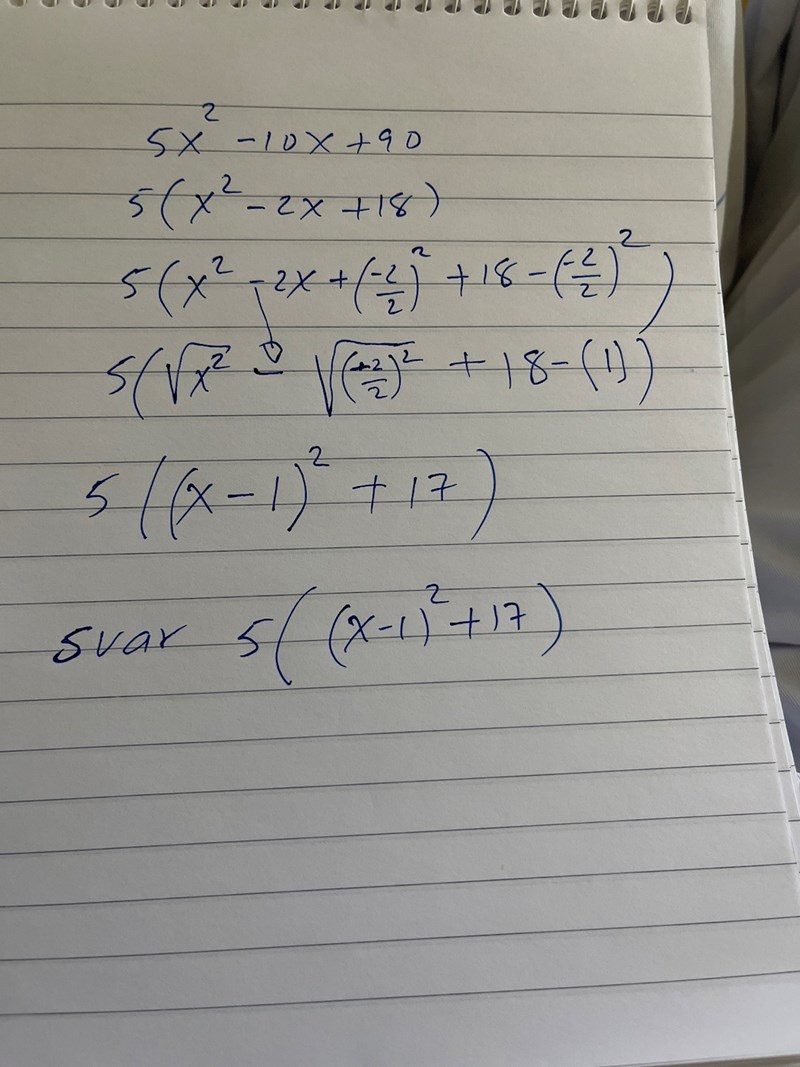 5x² -10x +90
5(x² -2x +18)
5(x² -2x +(-2/2)² +18 -(-2/2)²)
5(√x² - √(-2/2)² + 18 -(1))
5((x-1)² +17)
svar 5((x-1)² +17)